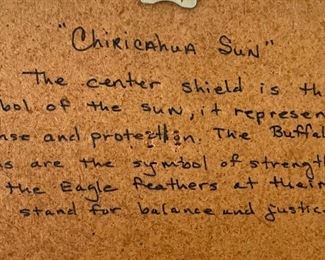 "Chiricahua Sun"
The center shield is th
bol of the sun, it represen
nse and protection. The Buffal
ns are the symbol of strength
the Eagle feathers at their
stand for balance and justice